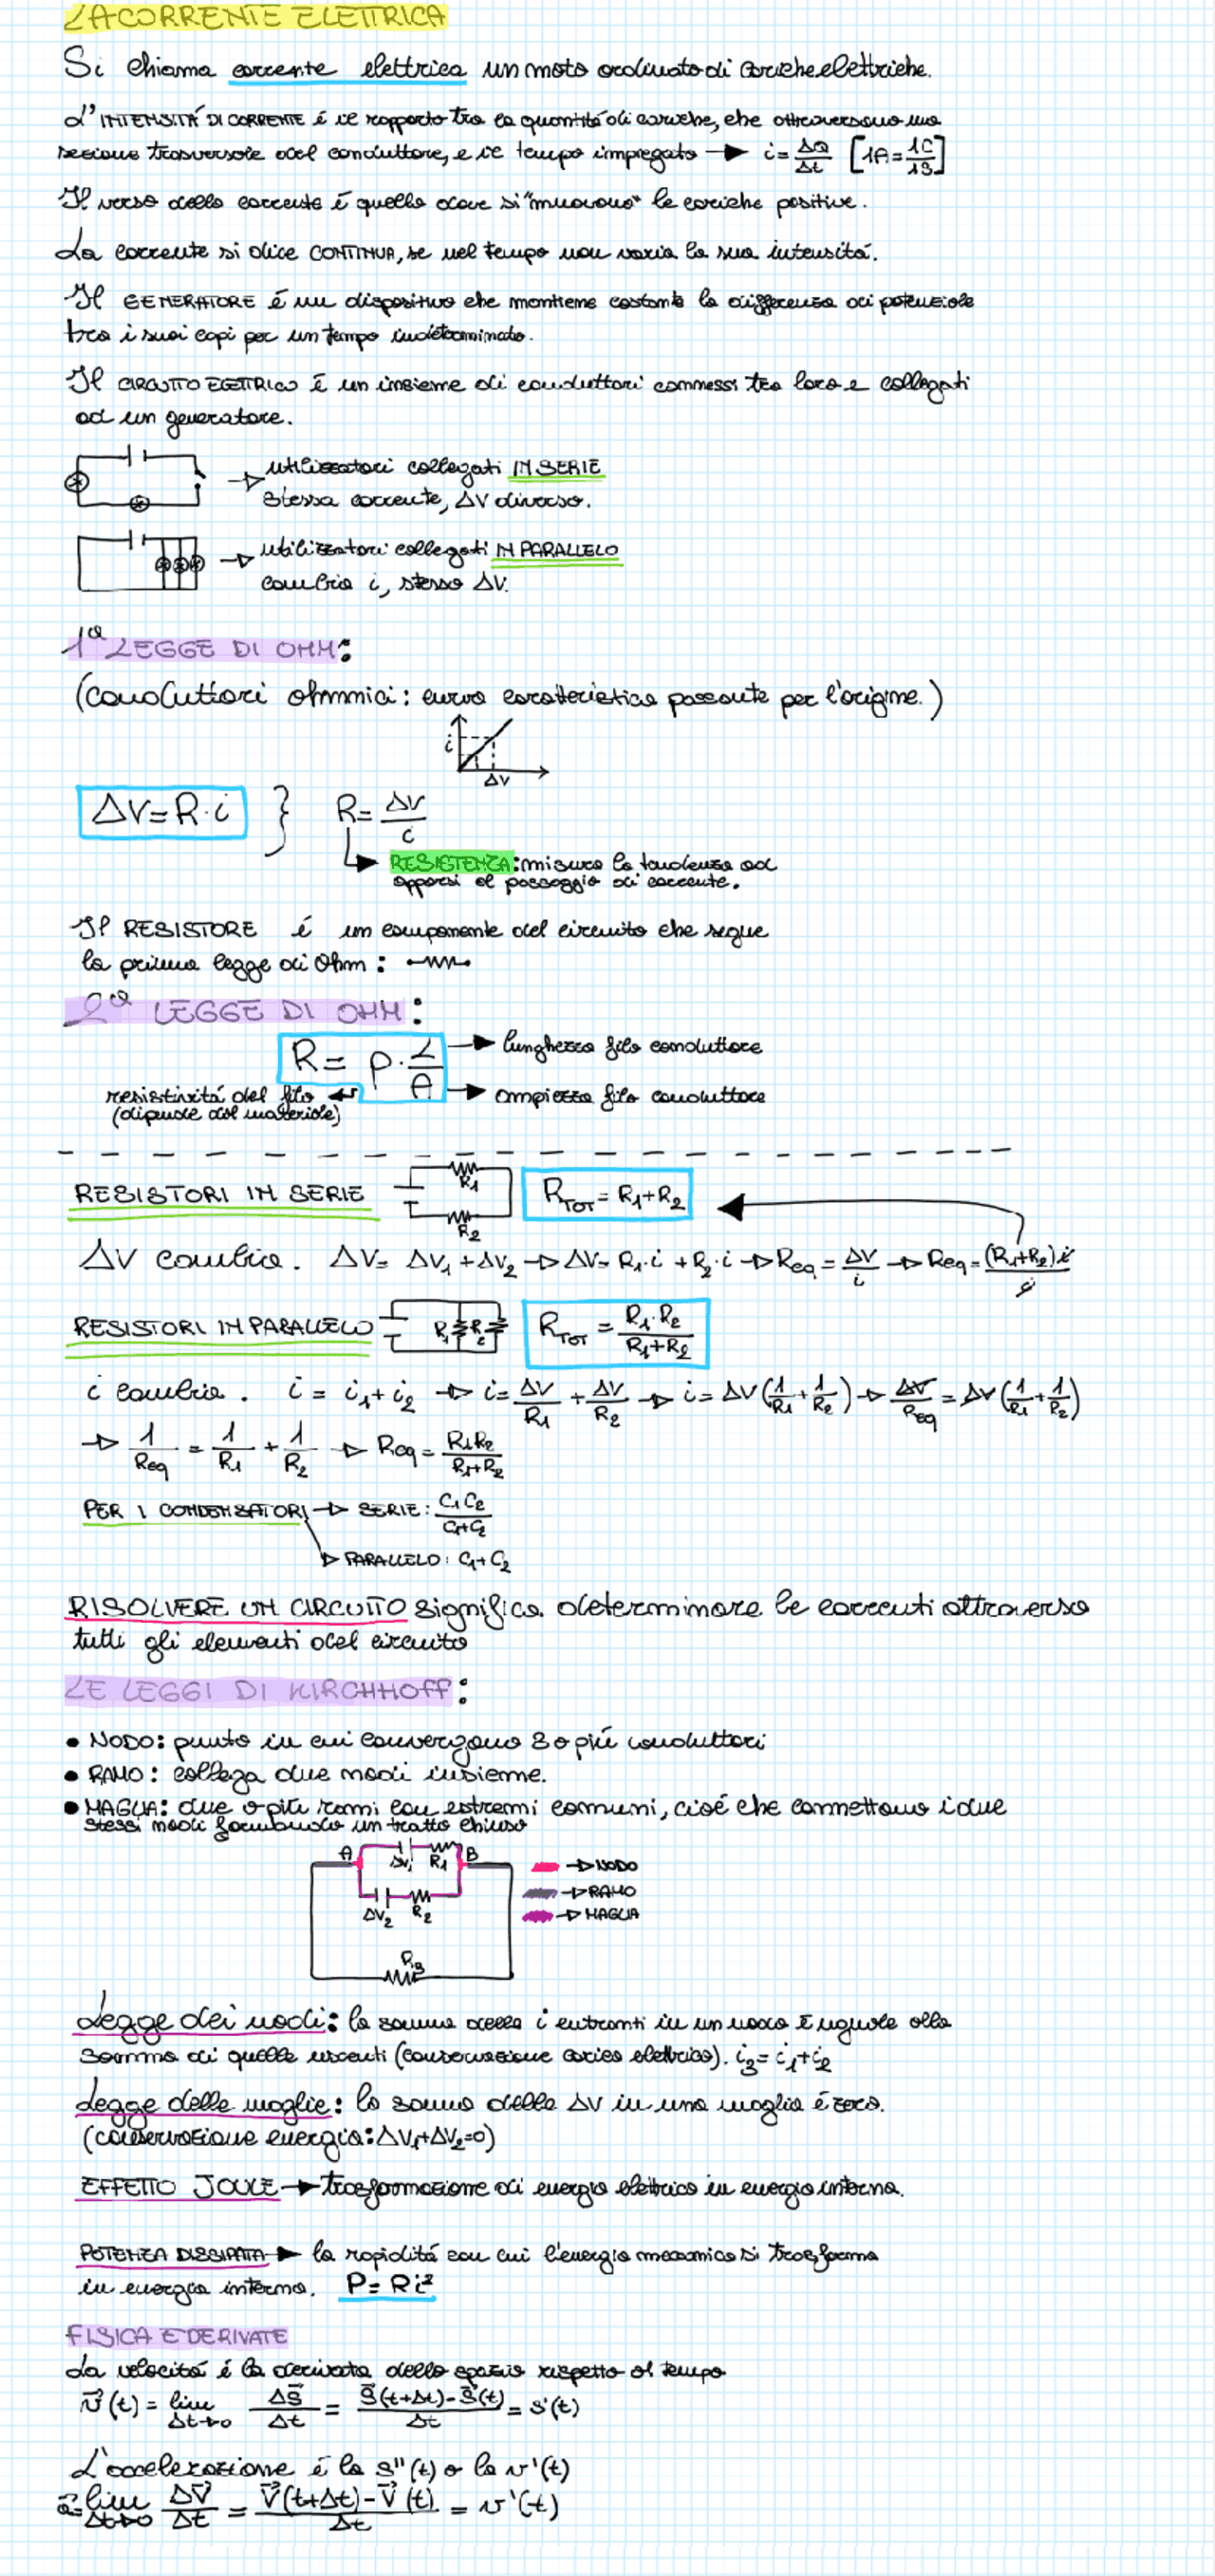 LA CORRENTE ELETTRICA
Si chiama corrente elettrica un moto ordinato di cariche elettriche.
L'INTENSITÁ DI CORRENTE é il rapporto tra la quantitá di cariche, che attraversano una
sezione trasversale del conduttore, e il tempo impiegato → i = ΔQ/Δt [1A = 1C/1S]
Il verso della corrente é quello dove si "muovono" le cariche positive.
La corrente si dice CONTINUA, se nel tempo non varia la sua intensitá.
Il GENERATORE é un dispositivo che mantiene costante la differenza di potenziale
tra i suoi capi per un tempo indeterminato.
Il CIRCUITO ELETTRICO é un insieme di conduttori connessi tra loro e collegati
ad un generatore.
→ utilizzatori collegati IN SERIE
stessa corrente, ΔV diverso.
→ utilizzatori collegati IN PARALLELO
cambia i, stesso ΔV.
1ª LEGGE DI OHM:
(conduttori ohmmici: curva caratteristica passante per l'origine.)
i
ΔV
ΔV = R·i } R = ΔV/i
→ RESISTENZA: misura la tendenza ad
opporsi al passaggio di corrente.
Il RESISTORE é un componente del circuito che segue
la prima legge di Ohm:
2ª LEGGE DI OHM:
R = ρ·L/A → lunghezza filo conduttore
resistivitá del filo → ampiezza filo conduttore
(dipende dal materiale)
RESISTORI IN SERIE R1 R2 R_TOT = R1+R2
ΔV cambia. ΔV = ΔV1 + ΔV2 → ΔV = R1·i + R2·i → Req = ΔV/i → Req = (R1+R2)i/i
RESISTORI IN PARALLELO R1 R2 R_TOT = R1·R2/(R1+R2)
i cambia. i = i1 + i2 → i = ΔV/R1 + ΔV/R2 → i = ΔV(1/R1 + 1/R2) → ΔV/Req = ΔV(1/R1 + 1/R2)
→ 1/Req = 1/R1 + 1/R2 → Req = R1R2/(R1+R2)
PER I CONDENSATORI → SERIE: C1C2/(C1+C2)
→ PARALLELO: C1+C2
RISOLVERE UN CIRCUITO significa determinare le correnti attraverso
tutti gli elementi del circuito
LE LEGGI DI KIRCHHOFF:
• NODO: punto in cui convergono 3 o piú conduttori
• RAMO: collega due nodi insieme.
• MAGLIA: due o piú rami con estremi comuni, cioé che connettono i due
stessi nodi formando un tratto chiuso
A ΔV1 R1 B → NODO
→ RAMO
ΔV2 R2 → MAGLIA
R3
Legge dei nodi: la somma delle i entranti in un nodo é uguale alla
somma di quelle uscenti (conservazione carica elettrica). i3 = i1+i2
Legge delle maglie: la somma delle ΔV in una maglia é zero.
(conservazione energia: ΔV1+ΔV2=0)
EFFETTO JOULE → trasformazione di energia elettrica in energia interna.
POTENZA DISSIPATA → la rapiditá con cui l'energia meccanica si trasforma
in energia interna. P = Ri²
FISICA E DERIVATE
La velocitá é la derivata dello spazio rispetto al tempo
v⃗(t) = lim Δt→0 ΔS⃗/Δt = (S⃗(t+Δt)-S⃗(t))/Δt = s'(t)
L'accelerazione é la s''(t) o la v'(t)
a⃗ = lim Δt→0 ΔV⃗/Δt = (V⃗(t+Δt)-V⃗(t))/Δt = v'(t)